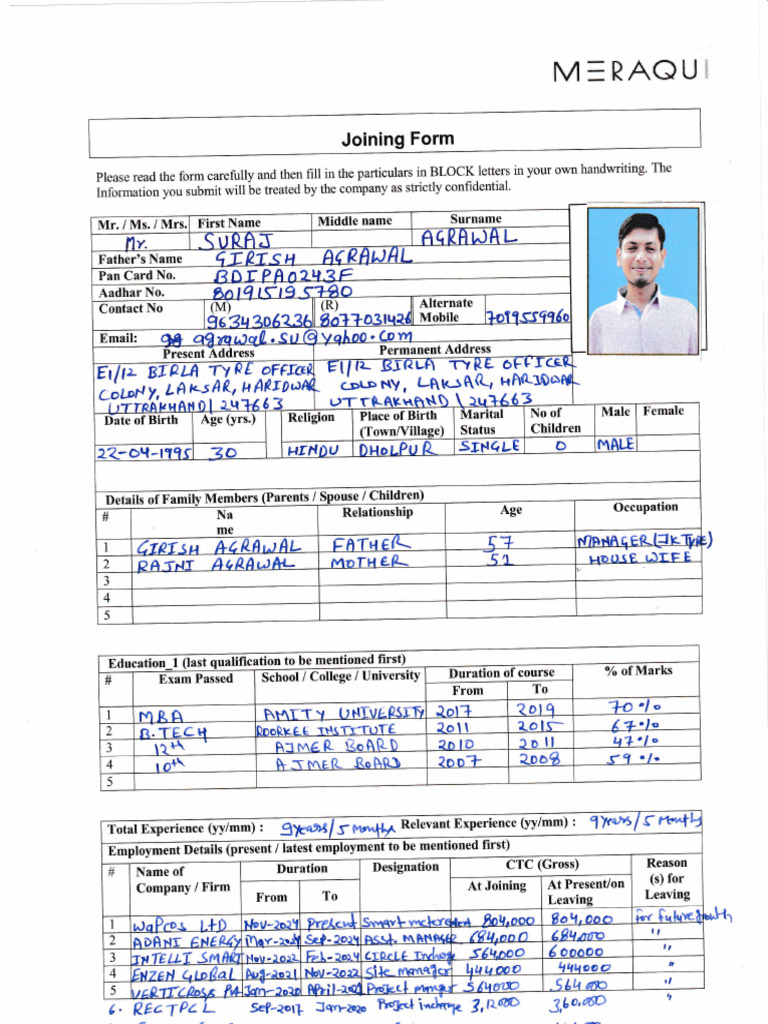 MERAQUI
Joining Form
Please read the form carefully and then fill in the particulars in BLOCK letters in your own handwriting. The
Information you submit will be treated by the company as strictly confidential.
Mr. / Ms. / Mrs. First Name Middle name Surname
Mr. SURAJ AGRAWAL
Father's Name GIRISH AGRAWAL
Pan Card No. BDIPA0243F
Aadhar No. 801915195780
Contact No (M) 9634306236 (R) 8077031426 Alternate Mobile 7089559960
Email: agrawal.su@yahoo.com
Present Address Permanent Address
E1/12 BIRLA TYRE OFFICER E1/12 BIRLA TYRE OFFICER
COLONY, LAKSAR, HARIDWAR COLONY, LAKSAR, HARIDWAR
UTTRAKHAND | 247663 UTTRAKHAND | 247663
Date of Birth Age (yrs.) Religion Place of Birth (Town/Village) Marital Status No of Children Male Female
22-04-1995 30 HINDU DHOLPUR SINGLE 0 MALE
Details of Family Members (Parents / Spouse / Children)
# Na me Relationship Age Occupation
1 GIRISH AGRAWAL FATHER 57 MANAGER (JK TYRE)
2 RAJNI AGRAWAL MOTHER 51 HOUSE WIFE
3
4
5
Education_1 (last qualification to be mentioned first)
# Exam Passed School / College / University Duration of course % of Marks
From To
1 MBA AMITY UNIVERSITY 2017 2019 70%
2 B.TECH ROORKEE INSTITUTE 2011 2015 67%
3 12th AJMER BOARD 2010 2011 47%
4 10th AJMER BOARD 2007 2008 59%
5
Total Experience (yy/mm) : 9 years/5 Months Relevant Experience (yy/mm) : 9 years/5 Months
Employment Details (present / latest employment to be mentioned first)
# Name of Company / Firm Duration Designation CTC (Gross) Reason (s) for Leaving
From To At Joining At Present/on Leaving
1 Wapcos LTD Nov-2024 Present Smart meter 804,000 804,000 for future growth
2 ADANI ENERGY Mar-2024 Sep-2024 Asst. MANAGER 684,000 684000 "
3 INTELLI SMART Nov-2022 Feb-2024 CIRCLE Incharge 564000 600000 "
4 ENZEN GLOBAL Aug-2021 Nov-2022 Site manager 444000 444000 "
5 VERTICROSS Jan-2020 Project manager 564000 564000 "
6. RECTPCL SEP-2017 Jan-2020 Project incharge 3,12000 3,60,000 "